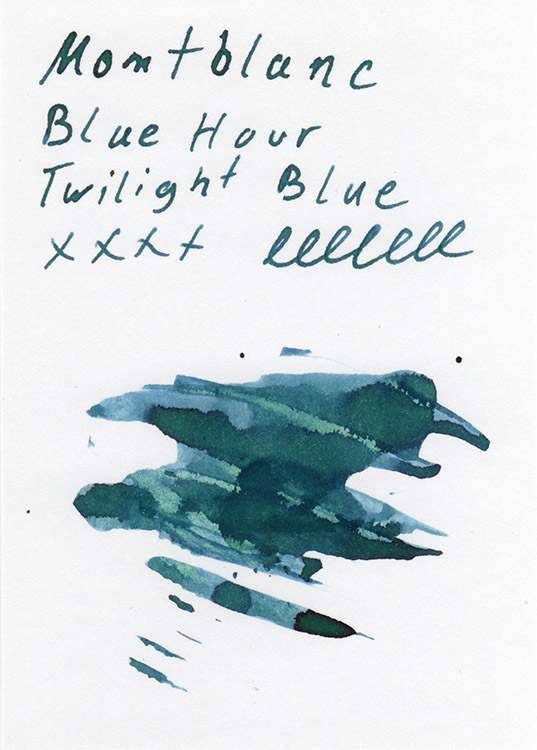 Montblanc
Blue Hour
Twilight Blue
xxxx elllllll